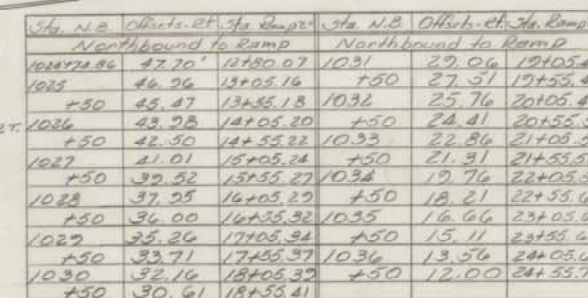 Sta. N.B. Offsets-Rt. Sta. Ramp Sta. N.B. Offsets-Rt. Sta. Ramp
Northbound to Ramp Northbound to Ramp
1024+74.86 47.70' 12+80.07 1031 29.06 19+05.4
1025 46.96 13+05.16 +50 27.51 19+55.
+50 45.47 13+55.18 1032 25.76 20+05.
RT. 1026 43.98 14+05.20 +50 24.41 20+55.
+50 42.50 14+55.22 1033 22.86 21+05.
1027 41.01 15+05.24 +50 21.31 21+55.
+50 39.52 15+55.27 1034 19.76 22+05.
1028 37.95 16+05.29 +50 18.21 22+55.
+50 36.00 16+55.32 1035 16.66 23+05.
1029 35.26 17+05.34 +50 15.11 23+55.6
+50 33.71 17+55.37 1036 13.56 24+05.6
1030 32.16 18+05.39 +50 12.00 24+55.
+50 30.61 18+55.41